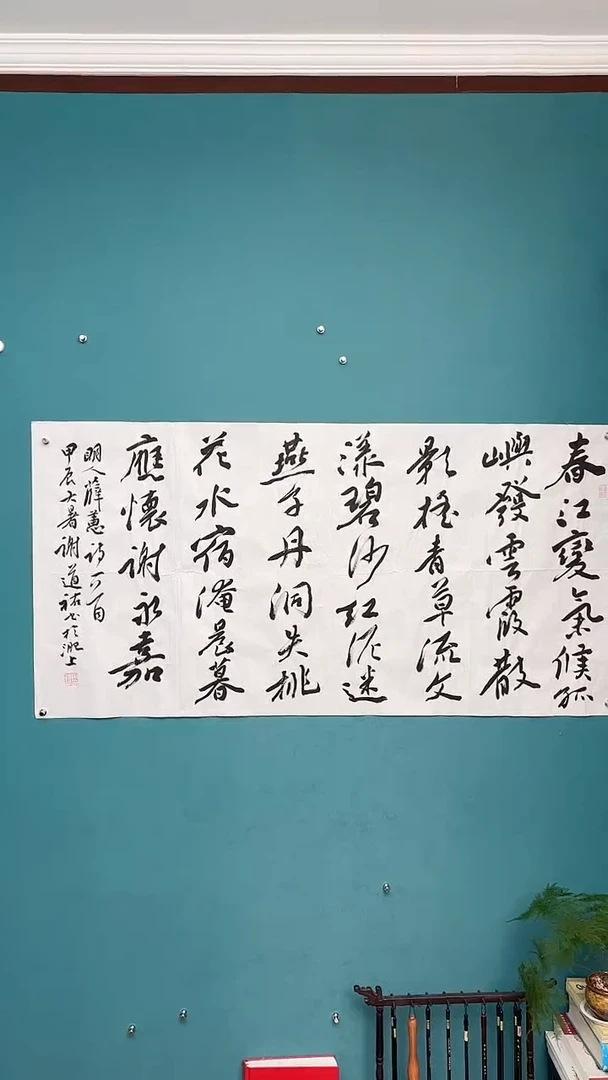 春江變氣候孤
嶼發雲霞散
影搖青草流文
漾碧沙紅泥迷
燕子丹洞失桃
花水宿淹晨暮
應懷謝永嘉
明人薛蕙詩一首
甲辰大暑謝道祐書於淝上